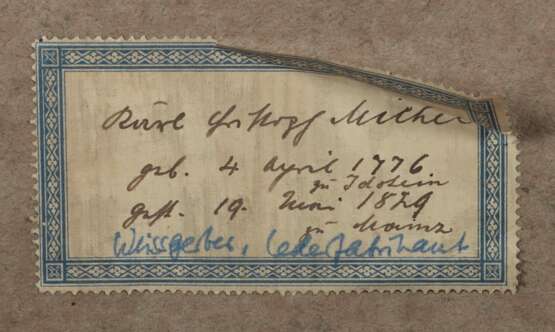 Karl Christoph Miche
geb. 4 April 1776
zu Idstein
gest. 19. Juni 1829
zu Mainz
Weissgerber, Lederfabrikant